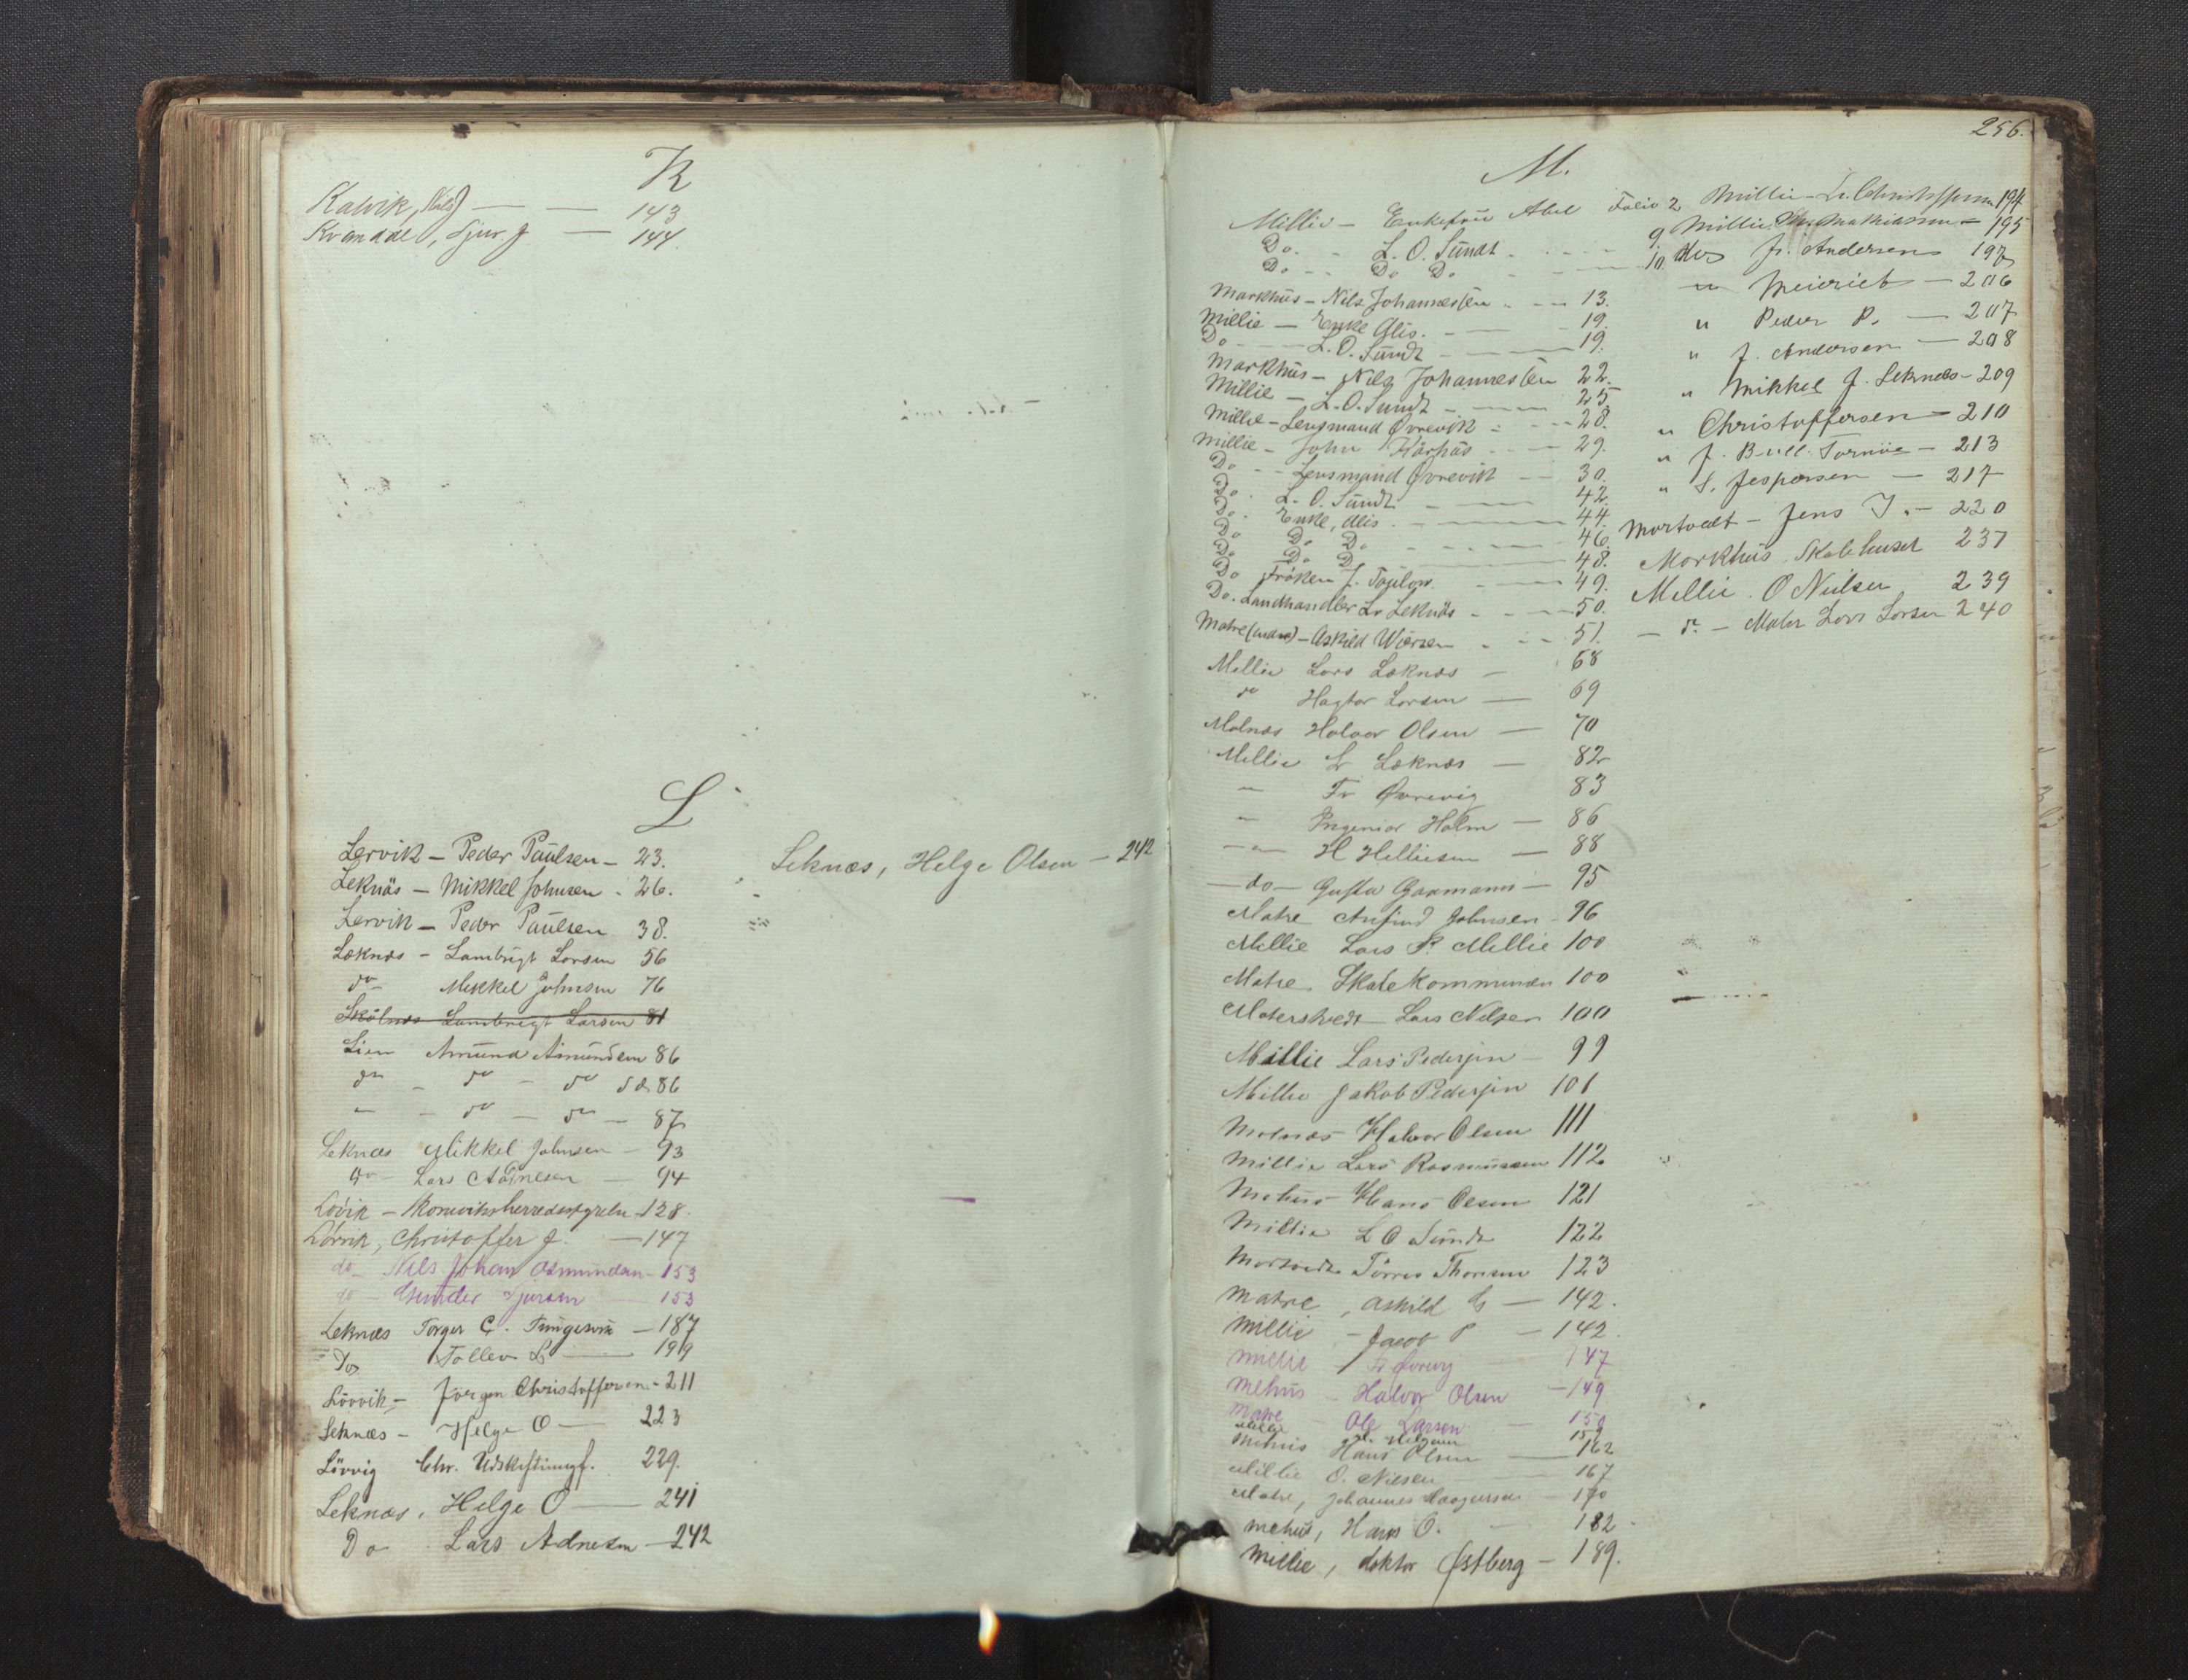 K
Kalvik, Nils J — — 143
Kvandal, Sjur J — 144.
L
Lervik – Peder Paulsen – 23.
Leknäs – Mikkel Johnsen - 26.
Lervik – Peder Paulsen 38.
Leknæs – Lambrigt Larsen 56
do Mikkel Johnsen 76
Skålnæs Lambrigt Larsen 81
Lien Amund Amundsen 86
do – do – do do 86
" – do – do – 87
Leknæs Mikkel Johnsen – 93
do – Lars Adnesen — 94
Lövik – Skoneviks herredsstyrelse – 128.
Lörvik, Christoffer J. — 147
do – Nils Johan Asmundsen – 153
do – Gunder Sjursen — 153
Leknæs Torger C. – 187
Do Tollev L — 199
Lövvik – Jörgen Christoffersen – 211
Leknæs – Helge O — 223
Lövvig Chr. Udskiftningsf. 229.
Leknæs, Helge O — 241
Do Lars Adnesen — 242
Leknæs, Helge Olsen – 242
256.
M.
Millie – Enkefrue Abel Folio 2
Do. - L. O. Sundt - - - - 9.
Do - - Do Do - - — 10.
Markhus – Nils Johannessen - – 13.
Millie — Enke Glis. - — - 19.
Do - — L. O. Sundt - — — 19.
Markhus – Nils Johannessen 22.
Millie – L. O. Sundt - — — 25
Millie – Lensmand Øvrevik - - – 28.
Millie – John Kårhus - - – 29.
Do - - Lensmand Øvrevik – 30.
Do - L. O. Sundt - — 42.
Do - Enke, Glis - — — 44.
Do Do Do - - - — 46.
Do Do Do — — 48.
Do Fröken J. - — 49.
Do. Landhandler Lr Leknäs - - — 50.
Matre (indre) – Askild Wiersen - - - 51.
Millie Lars Leknæs – 68
do Hagtor Larsen — 69
Molnæs Halvor Olsen — 70
Millie Lr Leknæs — 82
" Fr Øvrevig 83
" Ingeniør Holm — 86
— " — H Helliesen — 88
— do — Gusta Gaxmann – 95
Matre Anfind Johnsen – 96
Millie Lars P. Millie 100
Matre Skolekommunen 100
Matersted Lars Nelsen 100
Millie Lars Pedersen – 99
Millie Jakob Pedersen 101
Molnæs Halvor Olsen 111
Millie Lars Rasmussen 112
Mehus Hans Olsen 121
Millie L O Sundt 122
Mortvedt Törres Thorsen 123
Matre, Askild G — 142.
Millie – Jacob P – 142.
Millie – — 147
Mehus – Halvor Olsen – 149
Matre – Ole Larsen — 150
Millie H. Helgesen 159
Mehus Hans Olsen — 162
Millie O. Nielsen — 167
Matre, Johannes – 170
Mehus, Hans O. – 182 -
Millie, doktor Østberg – 189.
Millie – Lr. Christoffersen 194.
Millie, Mathiassen – 195
do J. Andersen 197
" Meieriet — 206
" Peder P. — 207
" J. Andersen — 208
" Mikkel J. Leknæs – 209
" Christoffersen – 210
" J. Bull Tornöe – 213
" S. Jespersen — 217
Mortvedt – Jens J. – 220
Markhus Skolehuset 237
Millie. O Nielsen 239
— do – Maler Lars Larsen 240